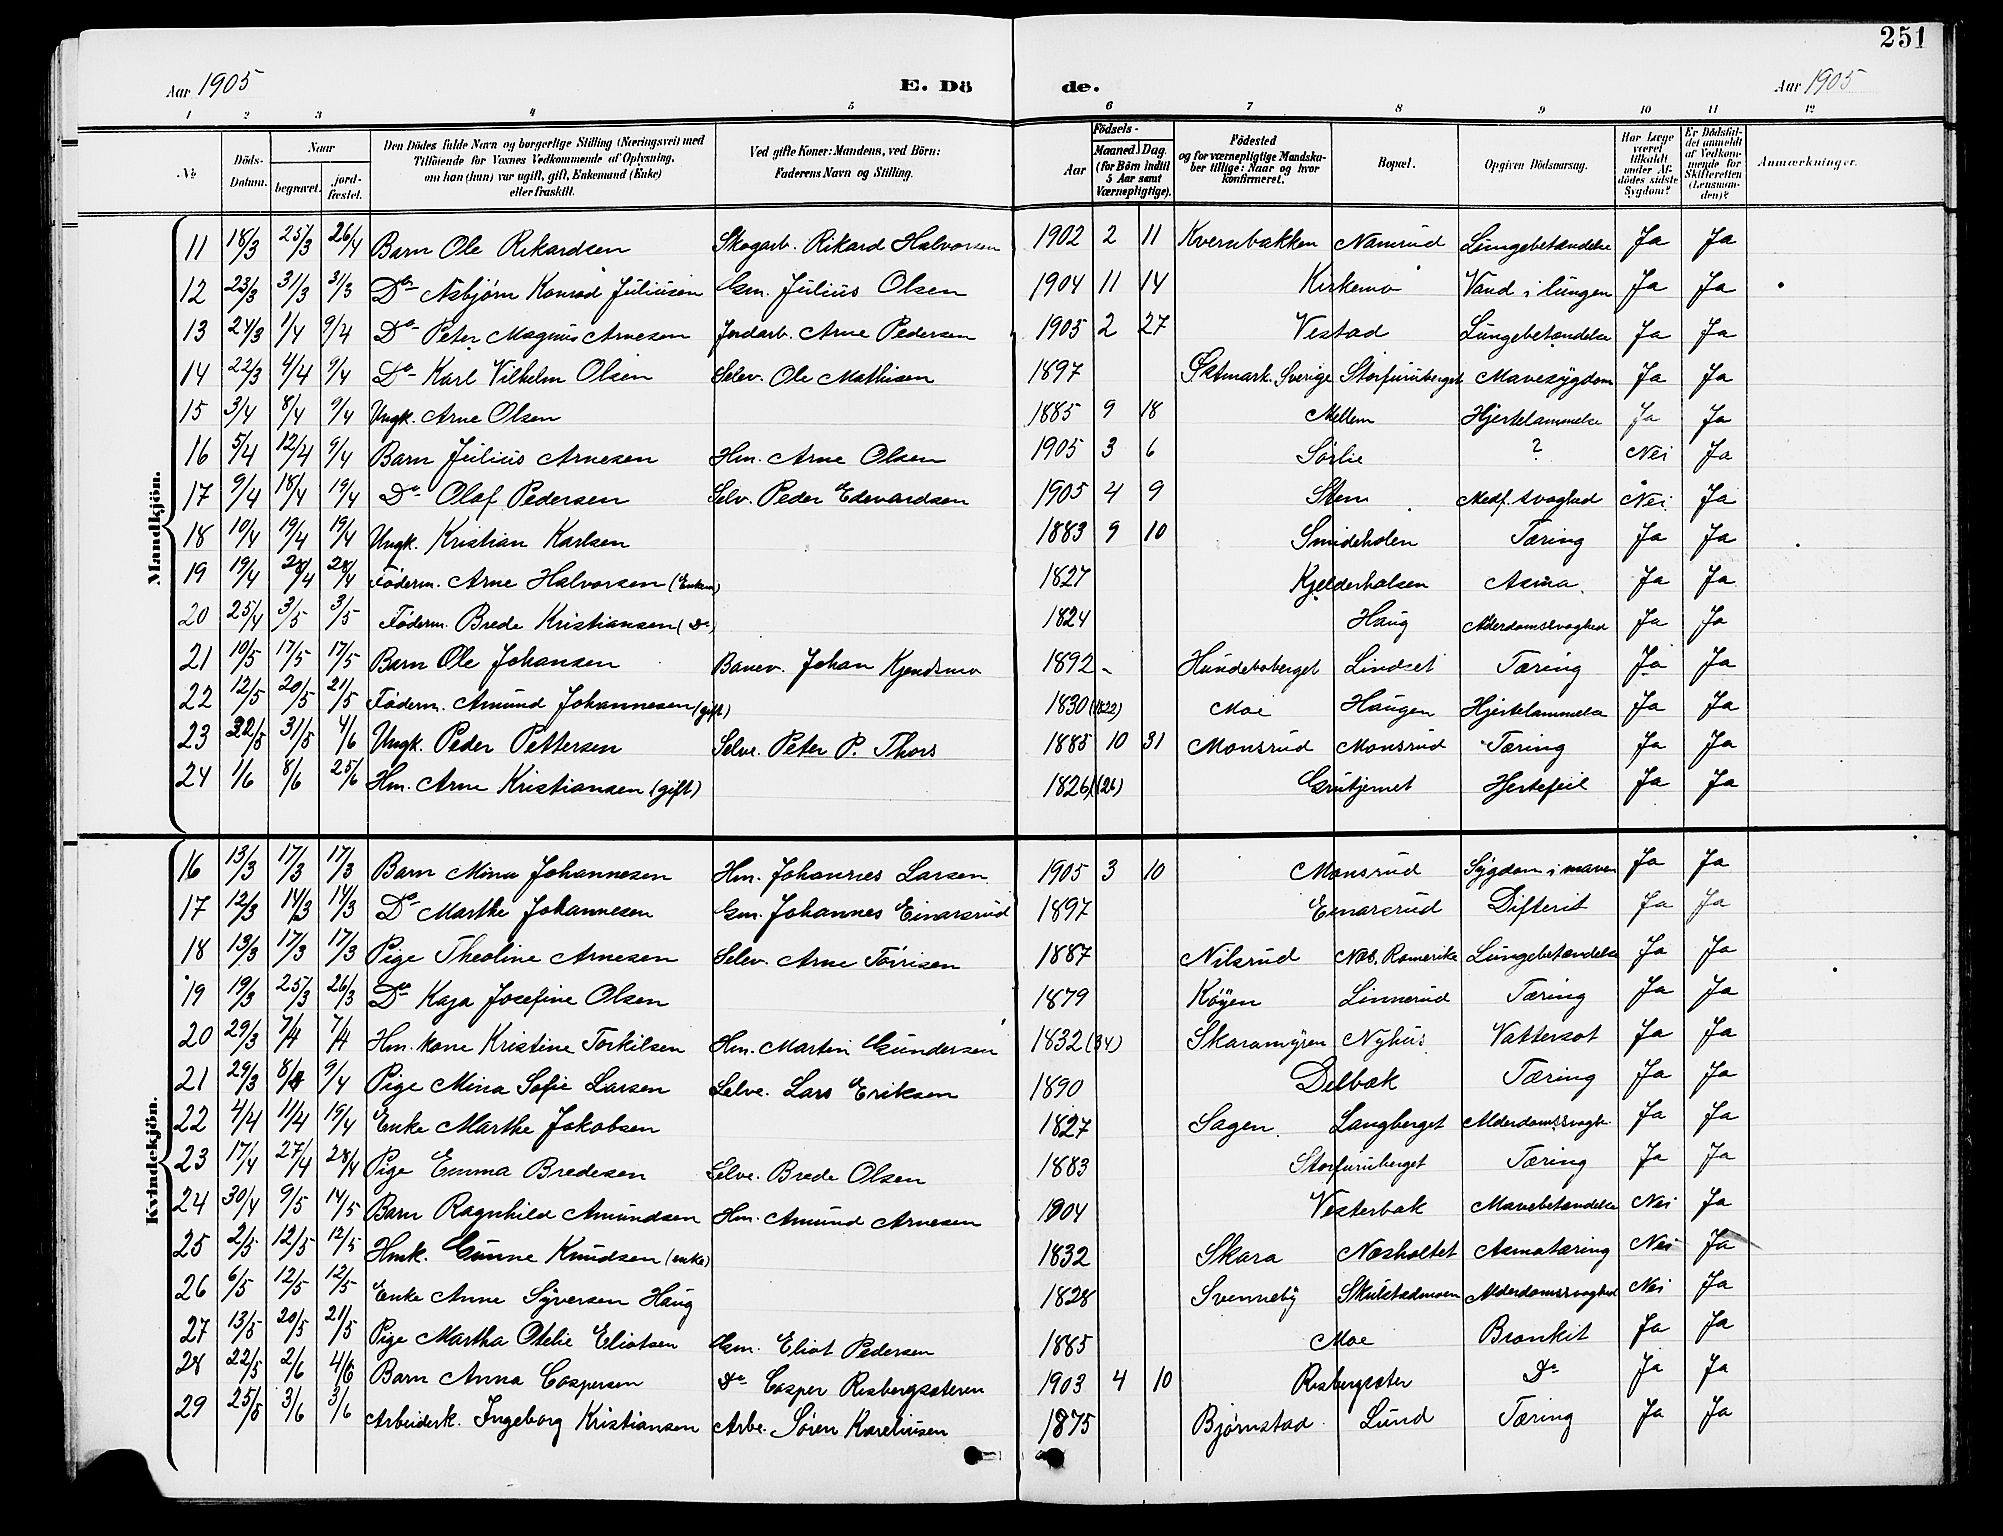 251
Aar 1905 E. Dö de. Aar 1905
1 2 3 4 5 6 7 8 9 10 11 12
№ Döds-Datum. Naar begravet. jord-fæstet. Den Dödes fulde Navn og borgerlige Stilling (Næringsvei) med Tilföiende for Voxnes Vedkommende af Oplysning, om han (hun) var ugift, gift, Enkemand (Enke) eller fraskilt. Ved gifte Koner: Mandens, ved Börn: Faderens Navn og Stilling. Födsels- Aar Maaned Dag (for Börn indtil 5 Aar samt Værnepligtige). Födested og for værnepligtige Mandska-ber tillige: Naar og hvor konfirmeret. Bopæl. Opgiven Dödsaarsag. Har Læge været tilkaldt under Af-dödes sidste Sygdom? Er Dödsfal-det anmeldt af Vedkom-mende for Skifteretten (Lensman-den)? Anmærkninger.
Mandkjön.
11 18/3 25/3 26/4 Barn Ole Rikardsen Skogarb. Rikard Halvorsen 1902 2 11 Kvernbakken Namrud Lungebetændelse Ja Ja
12 23/3 31/3 31/3 Do Asbjørn Konrad Juliusen Gm. Julius Olsen 1904 11 14 Kirkemo Vand i lungen Ja Ja
13 24/3 1/4 9/4 Do Peter Magnus Arnesen Jordarb. Arne Pedersen 1905 2 27 Vestad Lungebetændelse Ja Ja
14 22/3 4/4 9/4 Do Karl Vilhelm Olsen Selev. Ole Mathisen 1897 Østmark. Sverige Storfuruberget Mavesygdom Ja Ja
15 3/4 8/4 9/4 Ungk. Arne Olsen 1885 9 18 Mellem Hjertelammelse Ja Ja
16 5/4 12/4 9/4 Barn Julius Arnesen Hm. Arne Olsen 1905 3 6 Sørlie ? Nei Ja
17 9/4 18/4 19/4 Do Olaf Pedersen Selv. Peder Edvardsen 1905 4 9 Stem Medf. svaghed Nei Ja
18 10/4 19/4 19/4 Ungk. Kristian Karlsen 1883 9 10 Smideholen Tæring Ja Ja
19 19/4 28/4 28/4 Føderm. Arne Halvorsen (Enkem) 1827 Kjelderhalsen Asma Ja Ja
20 25/4 3/5 3/5 Føderm. Brede Kristiansen (Do) 1824 Haug Alderdomssvaghed Ja Ja
21 10/5 17/5 17/5 Barn Ole Johansen Banev. Johan Kjendsmo 1892 - Hundeboberget Lindset Tæring Ja Ja
22 12/5 20/5 21/5 Føderm. Amund Johannesen (gift) 1830 (1822) Moe Haugen Hjertelammelse Ja Ja
23 22/5 31/5 4/6 Ungk. Peder Pettersen Selve. Peter P. Thors 1885 10 31 Monsrud Monsrud Tæring Ja Ja
24 1/6 8/6 25/6 Hm. Arne Kristiansen (gift) 1826 (26) Grutjernet Hjertefeil Ja Ja
Kvindekjön.
16 13/3 17/3 17/3 Barn Mina Johannesen Hm. Johannes Larsen 1905 3 10 Monsrud Sygdom i maven Ja Ja
17 12/3 14/3 14/3 Do Marthe Johannesen Gm. Johannes Einarsrud 1897 Einarsrud Difterit Ja Ja
18 13/3 17/3 17/3 Pige Theoline Arnesen Selev. Arne Tørrisen 1887 Nilsrud Nes. Romerike Lungebetændelse Ja Ja
19 19/3 25/3 26/3 Do Kaja Josefine Olsen 1879 Køyen Linnerud Tæring Ja Ja
20 29/3 7/4 7/4 Hm. kone Kristine Torkilsen Hm. Martin Gundersen 1832 (34) Skaramyren Nyhus Vattersot Ja Ja
21 29/3 8/4 9/4 Pige Mina Sofie Larsen Selve. Lars Eriksen 1890 Delbæk Tæring Ja Ja
22 4/4 11/4 19/4 Enke Marthe Jakobsen 1827 Sagen Langberget Alderdomssvagh. Ja Ja
23 17/4 27/4 28/4 Pige Emma Bredesen Selve. Brede Olsen 1883 Storfuruberget Tæring Ja Ja
24 30/4 9/5 14/5 Barn Ragnhild Amundsen Hm. Amund Arnesen 1904 Vesterbæk Mavebetændelse Nei Ja
25 2/5 12/5 12/5 Hmk. Gunne Knudsen (enke) 1832 Skara Næsholtet Asmatæring Nei Ja
26 6/5 12/5 12/5 Enke Anne Syversen Haug 1828 Svenneby Skulstadmoen Alderdomssvaghed Nei Ja
27 13/5 20/5 21/5 Pige Martha Otelie Eliotsen Gm. Eliot Pedersen 1885 Moe Bronkit Ja Ja
28 22/5 2/6 4/6 Barn Anna Caspersen Do Casper Risbergsæteren 1903 4 10 Risbergsæter Do Ja Ja
29 25/5 3/6 3/6 Arbeiderk. Ingeborg Kristiansen Arbe. Søren Kareliusen 1875 Bjørnstad Lund Tæring Ja Ja